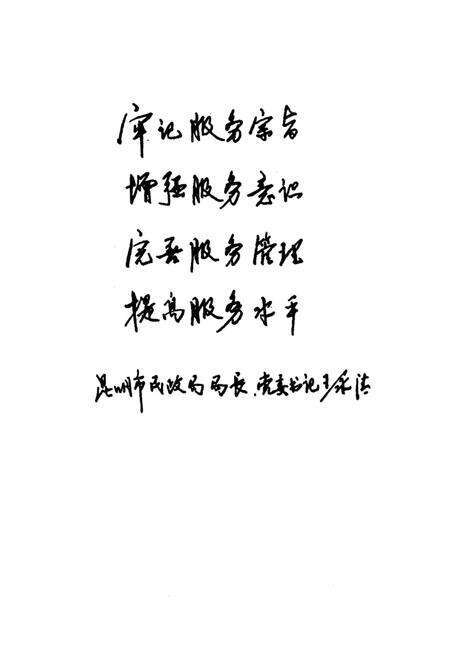 牢记服务宗旨
增强服务意识
完善服务管理
提高服务水平
昆明市民政局局长、党委书记王